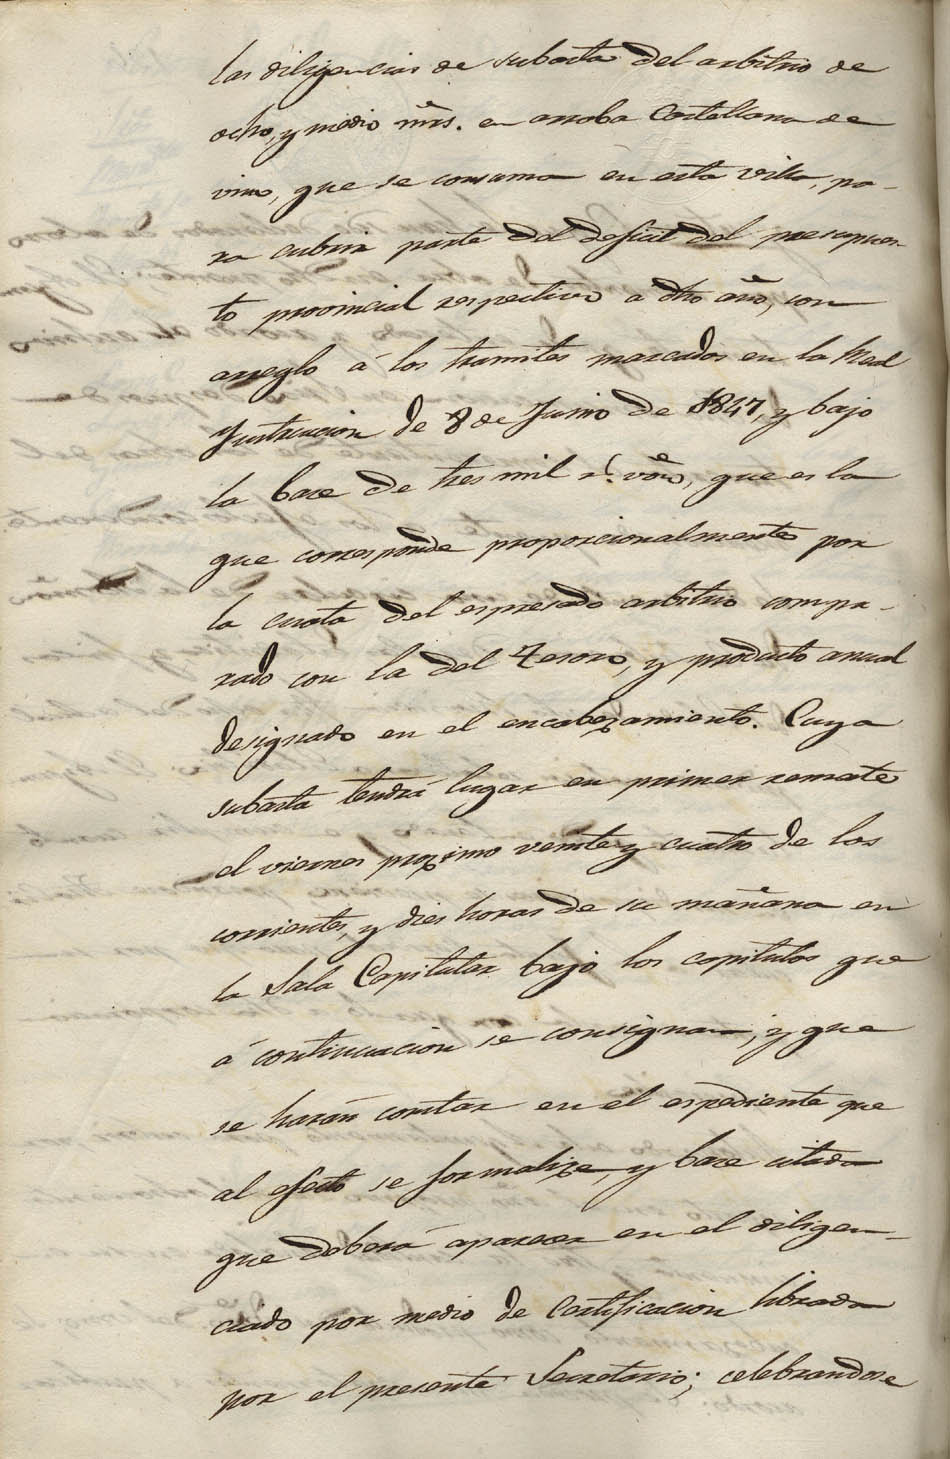 las diligencias de subasta del arbitrio de
ocho, y medio mrs. en arroba Castellana de
vino, que se consuma en esta villa, pa-
ra cubrir parte del deficit del presupues-
to provincial respectivo a dho año, con
arreglo á los tramites marcados en la Real
Ynstruccion de 8 de Junio de 1847, y bajo
la base de tres mil rs. von, que es la
que corresponde proporcionalmente por
la cuota del espresado arbitrio compa-
rado con la del Tesoro, y producto anual
designado en el encabezamiento. Cuya
subasta tendrá lugar en primer remate
el viernes proximo veinte y cuatro de los
corrientes, y dies horas de su mañana en
la Sala Capitular bajo los capitulos que
á continuacion se consignan, y que
se harán constar en el espediente que
al efecto se formalize, y base citada
que deberá aparecer en el diligen-
ciado por medio de Certificacion librada
por el presente Secretario; celebrandose